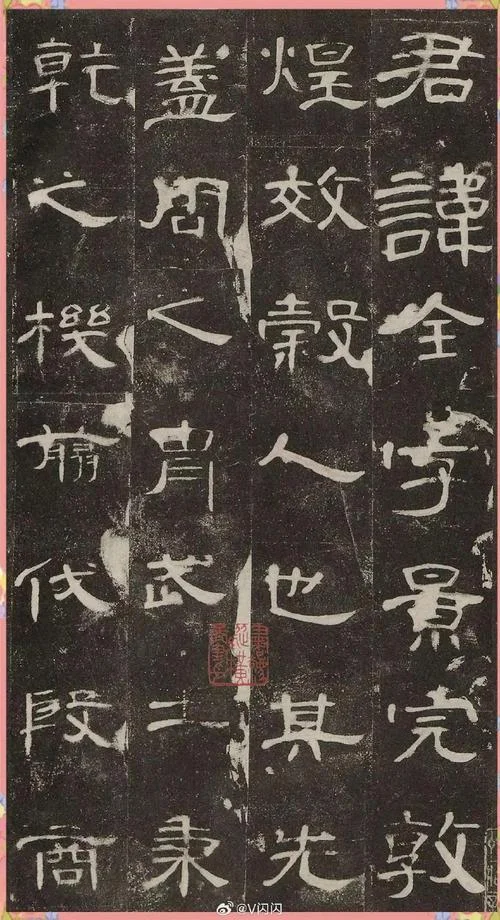 君諱全字景完敦
煌效穀人也其先
蓋周之胄武王秉
乾之機翦伐殷商
@V闪闪